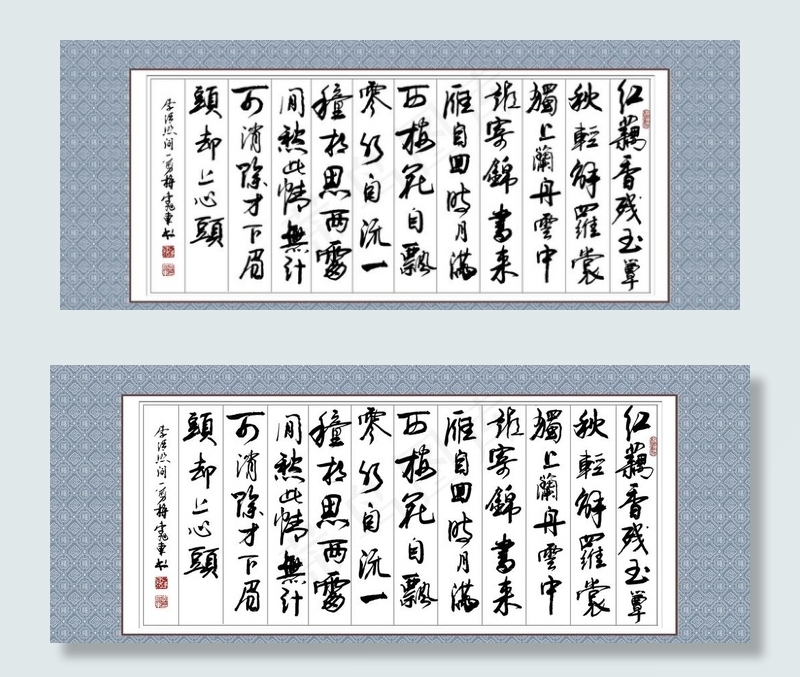 红藕香残玉簟
秋輕解羅裳
獨上蘭舟雲中
誰寄錦書来
雁自回时月滿
西楼花自飄
零水自流一
種相思两處
閒愁此情無計
可消除才下眉
頭却上心頭
李清照词一剪梅
红藕香残玉簟
秋輕解羅裳
獨上蘭舟雲中
誰寄錦書来
雁自回时月滿
西楼花自飄
零水自流一
種相思两處
閒愁此情無計
可消除才下眉
頭却上心頭
李清照词一剪梅